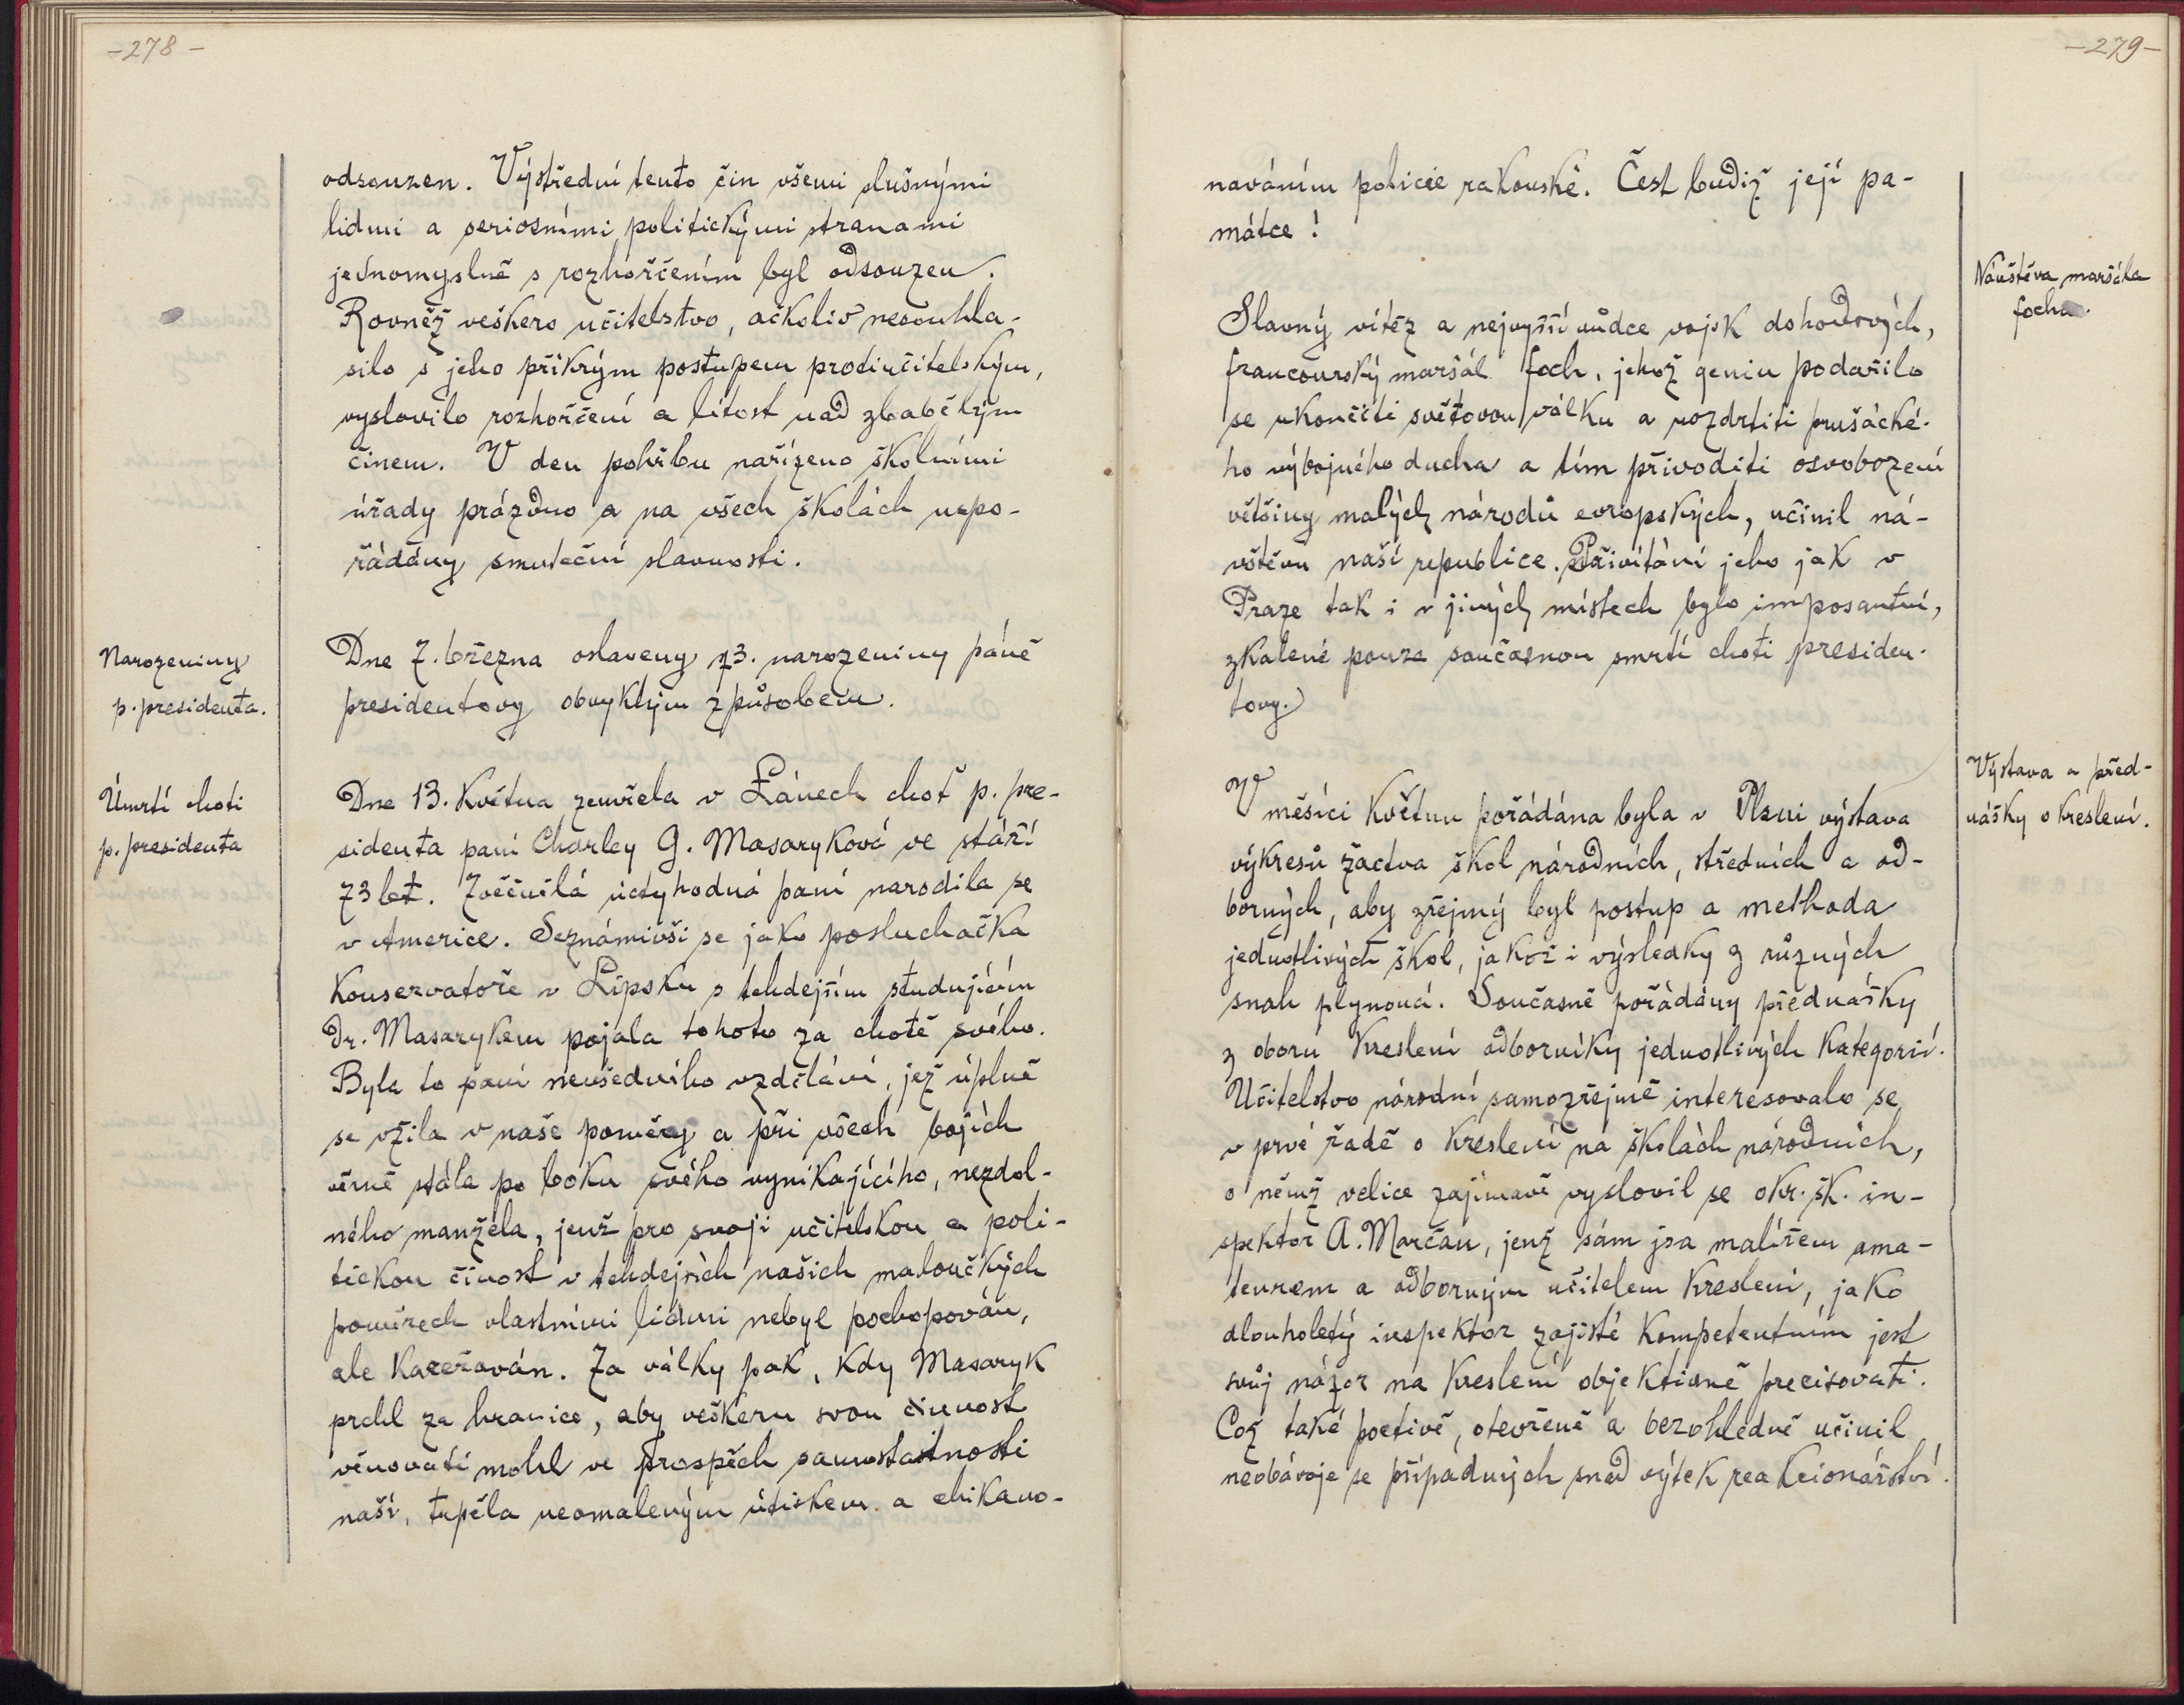 -278-
odsouzen. Výstřední tento čin všemi slušnými
lidmi a seriosními politickými stranami
jednomyslně s rozhořčením byl odsouzen.
Rovněž veškero učitelstvo, ačkoliv nesouhla-
silo s jeho příkrým postupem protiučitelským,
vyslovilo rozhořčení a lítost nad zbabělým
činem. V den pohřbu nařízeno školními
úřady prázdno a na všech školách uspo-
řádány smuteční slavnosti.
Narozeniny
p. presidenta.
Dne 7. března oslaveny 73. narozeniny páně
presidentovy obvyklým způsobem.
Úmrtí choti
p. presidenta
Dne 13. května zemřela v Lánech choť p. pre-
sidenta paní Charley G. Masaryková ve stáří
73 let. Zvěčnilá úctyhodná paní narodila se
v Americe. Seznámivši se jako posluchačka
konservatoře v Lipsku s tehdejším studujícím
Dr. Masarykem pojala tohoto za chotě svého.
Byla to paní nevšedního vzdělání, jež úplně
se vžila v naše poměry a při všech bojích
věrně stála po boku svého vynikajícího, nezdol-
ného manžela, jenž pro svoji učitelskou a poli-
tickou činost v tehdejších našich maloučkých
poměrech vlastními lidmi nebyl pochopován,
ale kaceřován. Za války pak, kdy Masaryk
prchl za hranice, aby veškeru svou činnost
věnovati mohl ve prospěch samostatnosti
naší, trpěla neomaleným útiskem a chikano-
-279-
naváním policie rakouské. Čest budiž její pa-
mátce!
Návštěva maršála
Focha.
Slavný vítěz a nejvyšší vůdce vojsk dohodových,
francouský maršál Foch, jehož geniu podařilo
se ukončiti světovou válku a rozdrtiti prušácké-
ho výbojného ducha a tím přivoditi osvobození
většiny malých národů evropských, učinil ná-
vštěvu naší republice. Přivítání jeho jak v
Praze tak i v jiných místech bylo imposantní,
zkalené pouze současnou smrtí choti presiden-
tovy.
Výstava a před-
nášky o kreslení.
V měsíci květnu pořádána byla v Plzni výstava
výkresů žactva škol národních, středních a od-
borných, aby zřejmý byl postup a methoda
jednotlivých škol, jakož i výsledky z různých
snah plynoucí. Současně pořádány přednášky
z oboru kreslení odborníky jednotlivých kategorií.
Učitelstvo národní samozřejmě interesovalo se
v prvé řadě o kreslení na školách národních,
o němž velice zajímavě vyslovil se okr. šk. in-
spektor A. Marčan, jenž sám jsa malířem ama-
teurem a odborným učitelem kreslení, jako
dlouholetý inspektor zajisté kompetentním jest
svůj názor na kreslení objektivně precisovati.
Což také poctivě, otevřeně a bezohledně učinil
neobávaje se případných snad výtek reakcionářství.